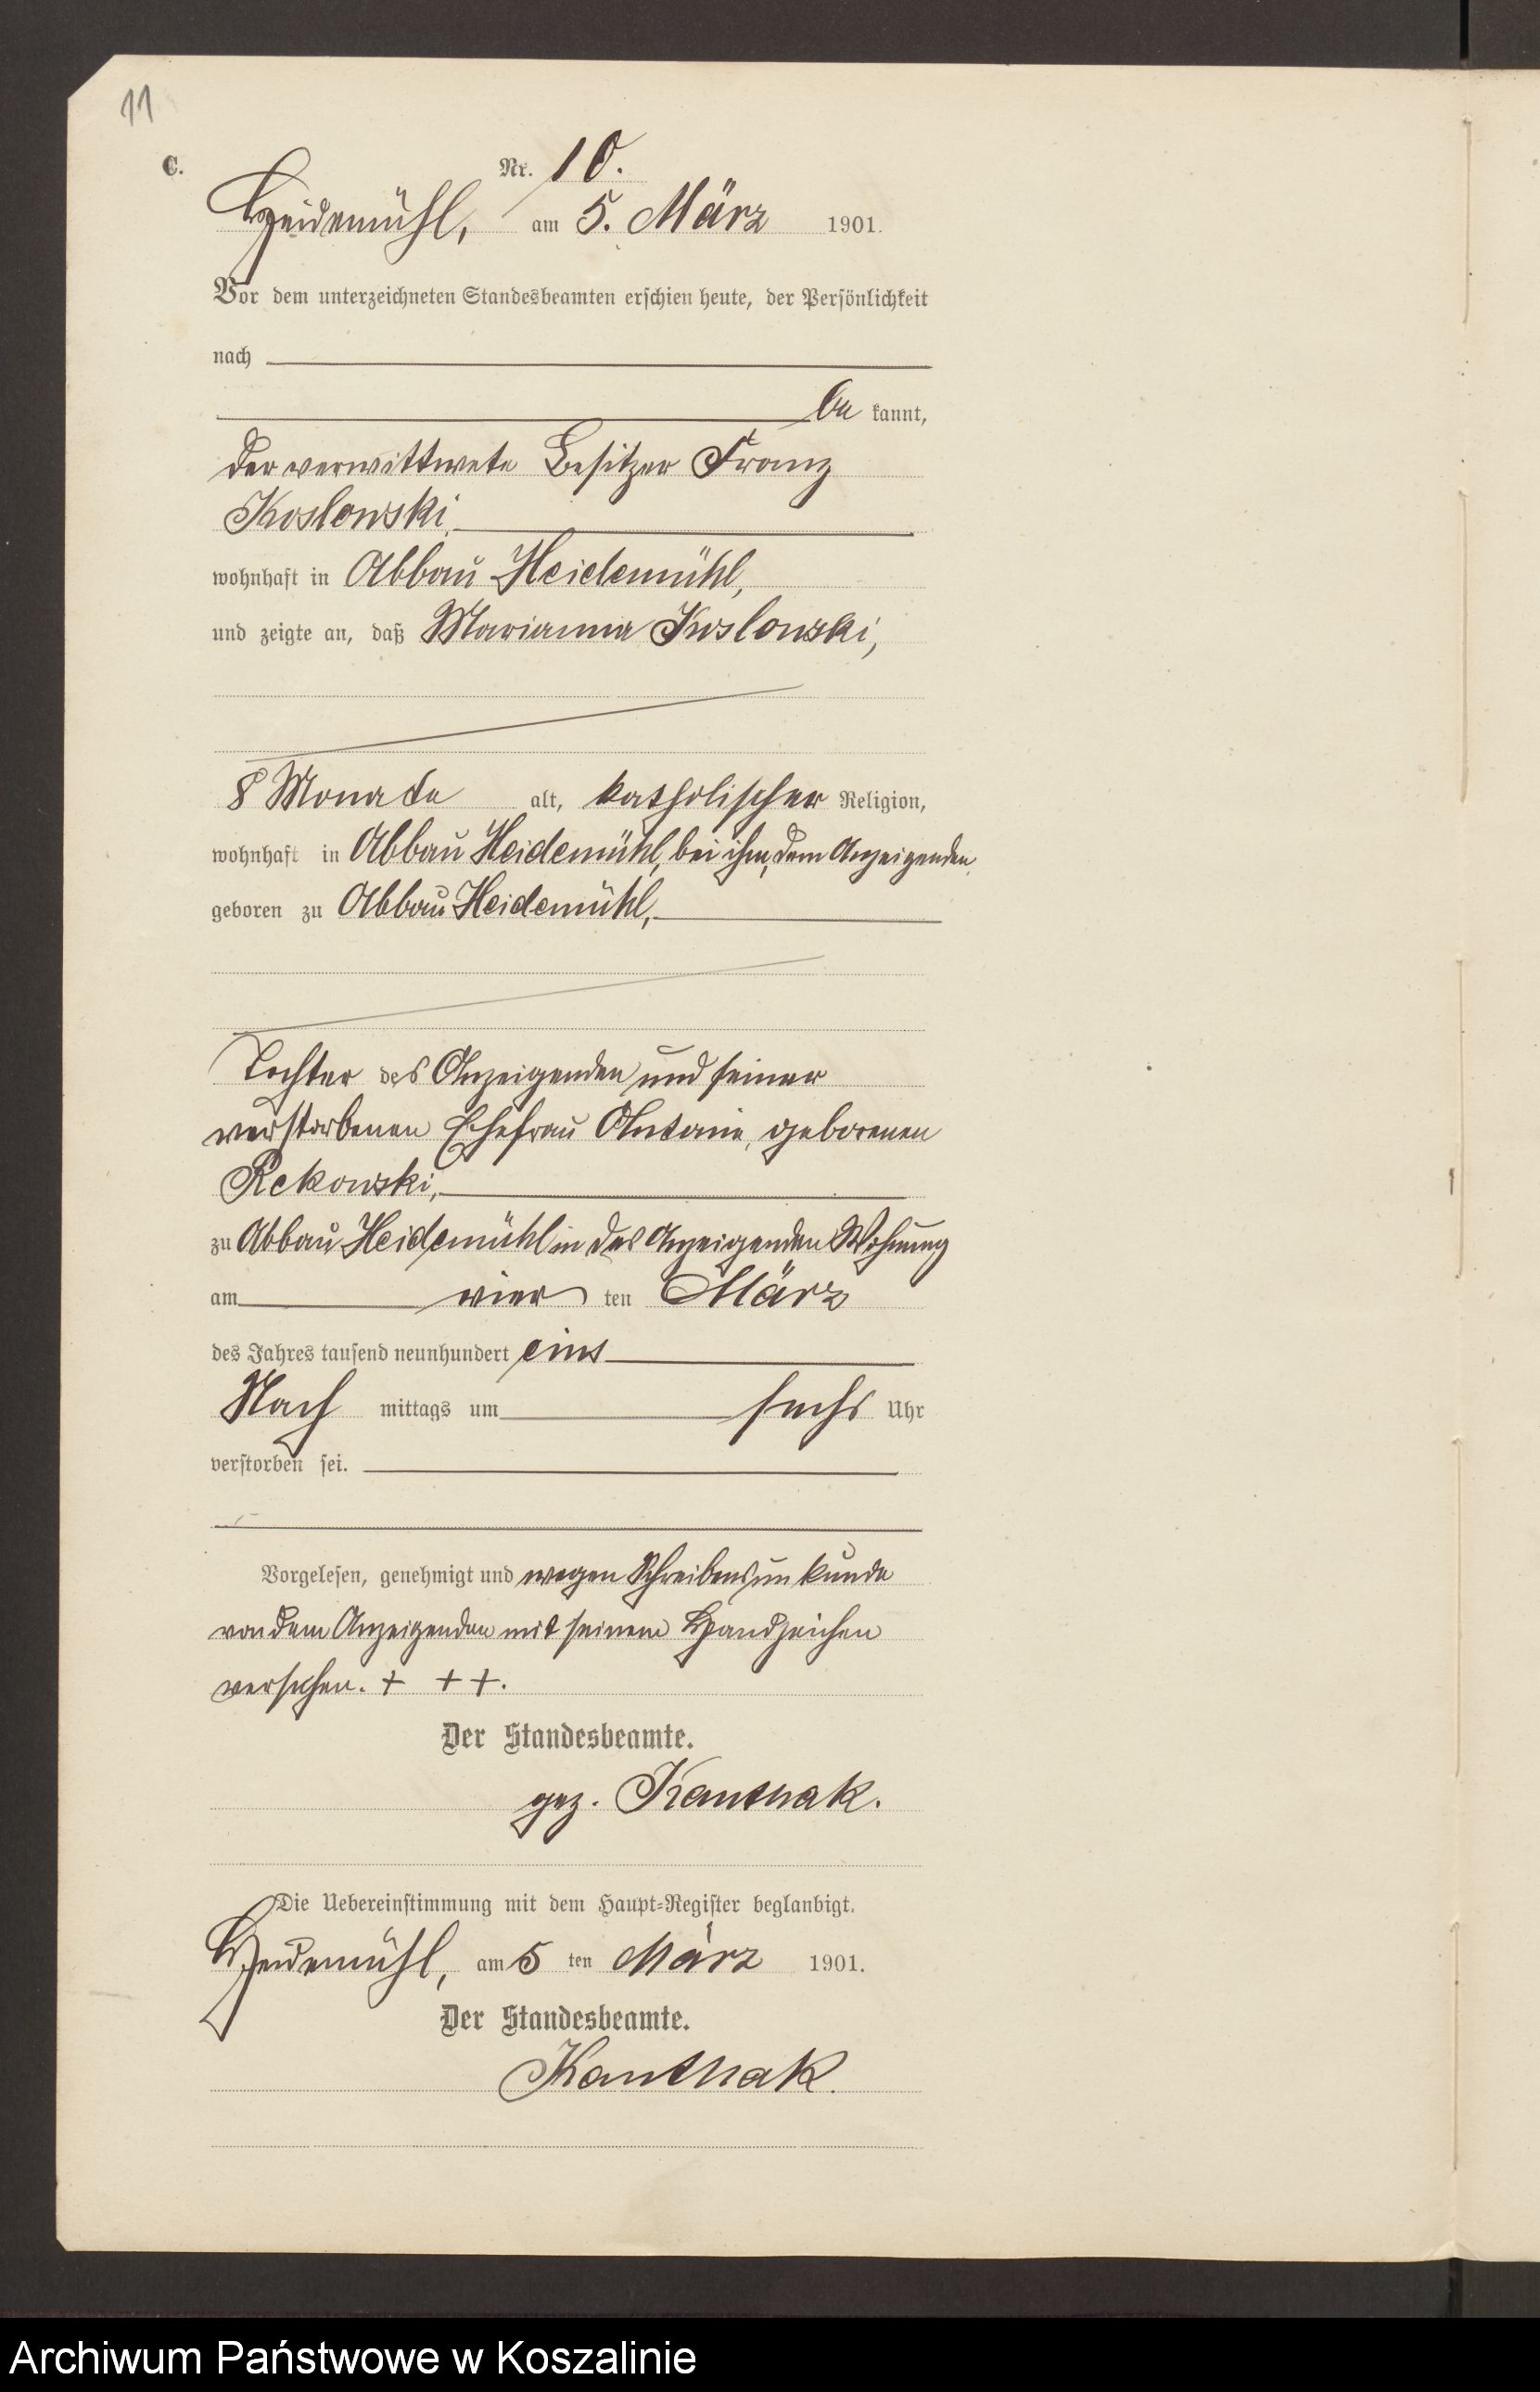 11
C.
Nr. 10.
Heidemühl, am 5. März 1901.
Vor dem unterzeichneten Standesbeamten erschien heute, der Persönlichkeit
nach
be kannt,
der verwittwete Besitzer Franz
Koslowski,
wohnhaft in Abbau Heidemühl,
und zeigte an, daß Marianna Koslowski,
8 Monate alt, katholischer Religion,
wohnhaft in Abbau Heidemühl, bei ihm, dem Anzeigenden,
geboren zu Abbau Heidemühl,
Tochter des Anzeigenden und seiner
verstorbenen Ehefrau Antonie, geborenen
Rekowski,
zu Abbau Heidemühl in des Anzeigenden Wohnung
am vier ten März
des Jahres tausend neunhundert eins
Nach mittags um sechs Uhr
verstorben sei.
Vorgelesen, genehmigt und wegen Schreibensunkunde
von dem Anzeigenden mit seinem Handzeichen
versehen. + + +.
Der Standesbeamte.
gez. Kanthak.
Die Uebereinstimmung mit dem Haupt-Register beglaubigt.
Heidemühl, am 5 ten März 1901.
Der Standesbeamte.
Kanthak.
Archiwum Państwowe w Koszalinie